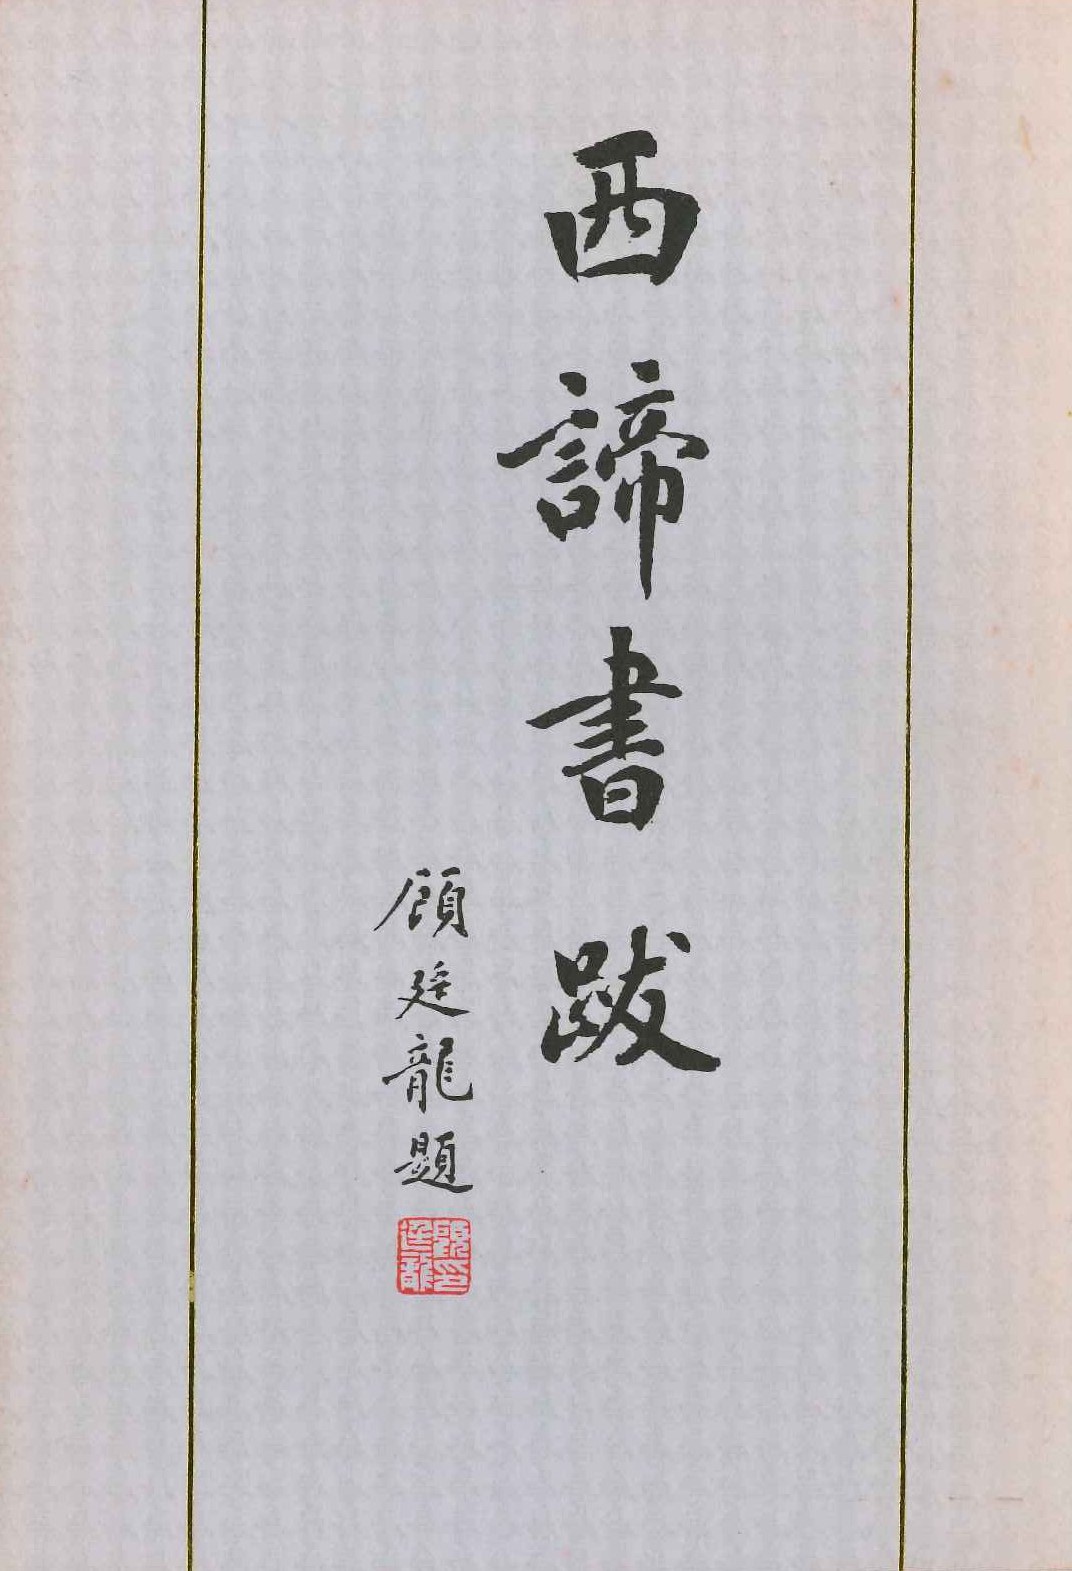 西諦書跋
顧廷龍題
顧廷龍印